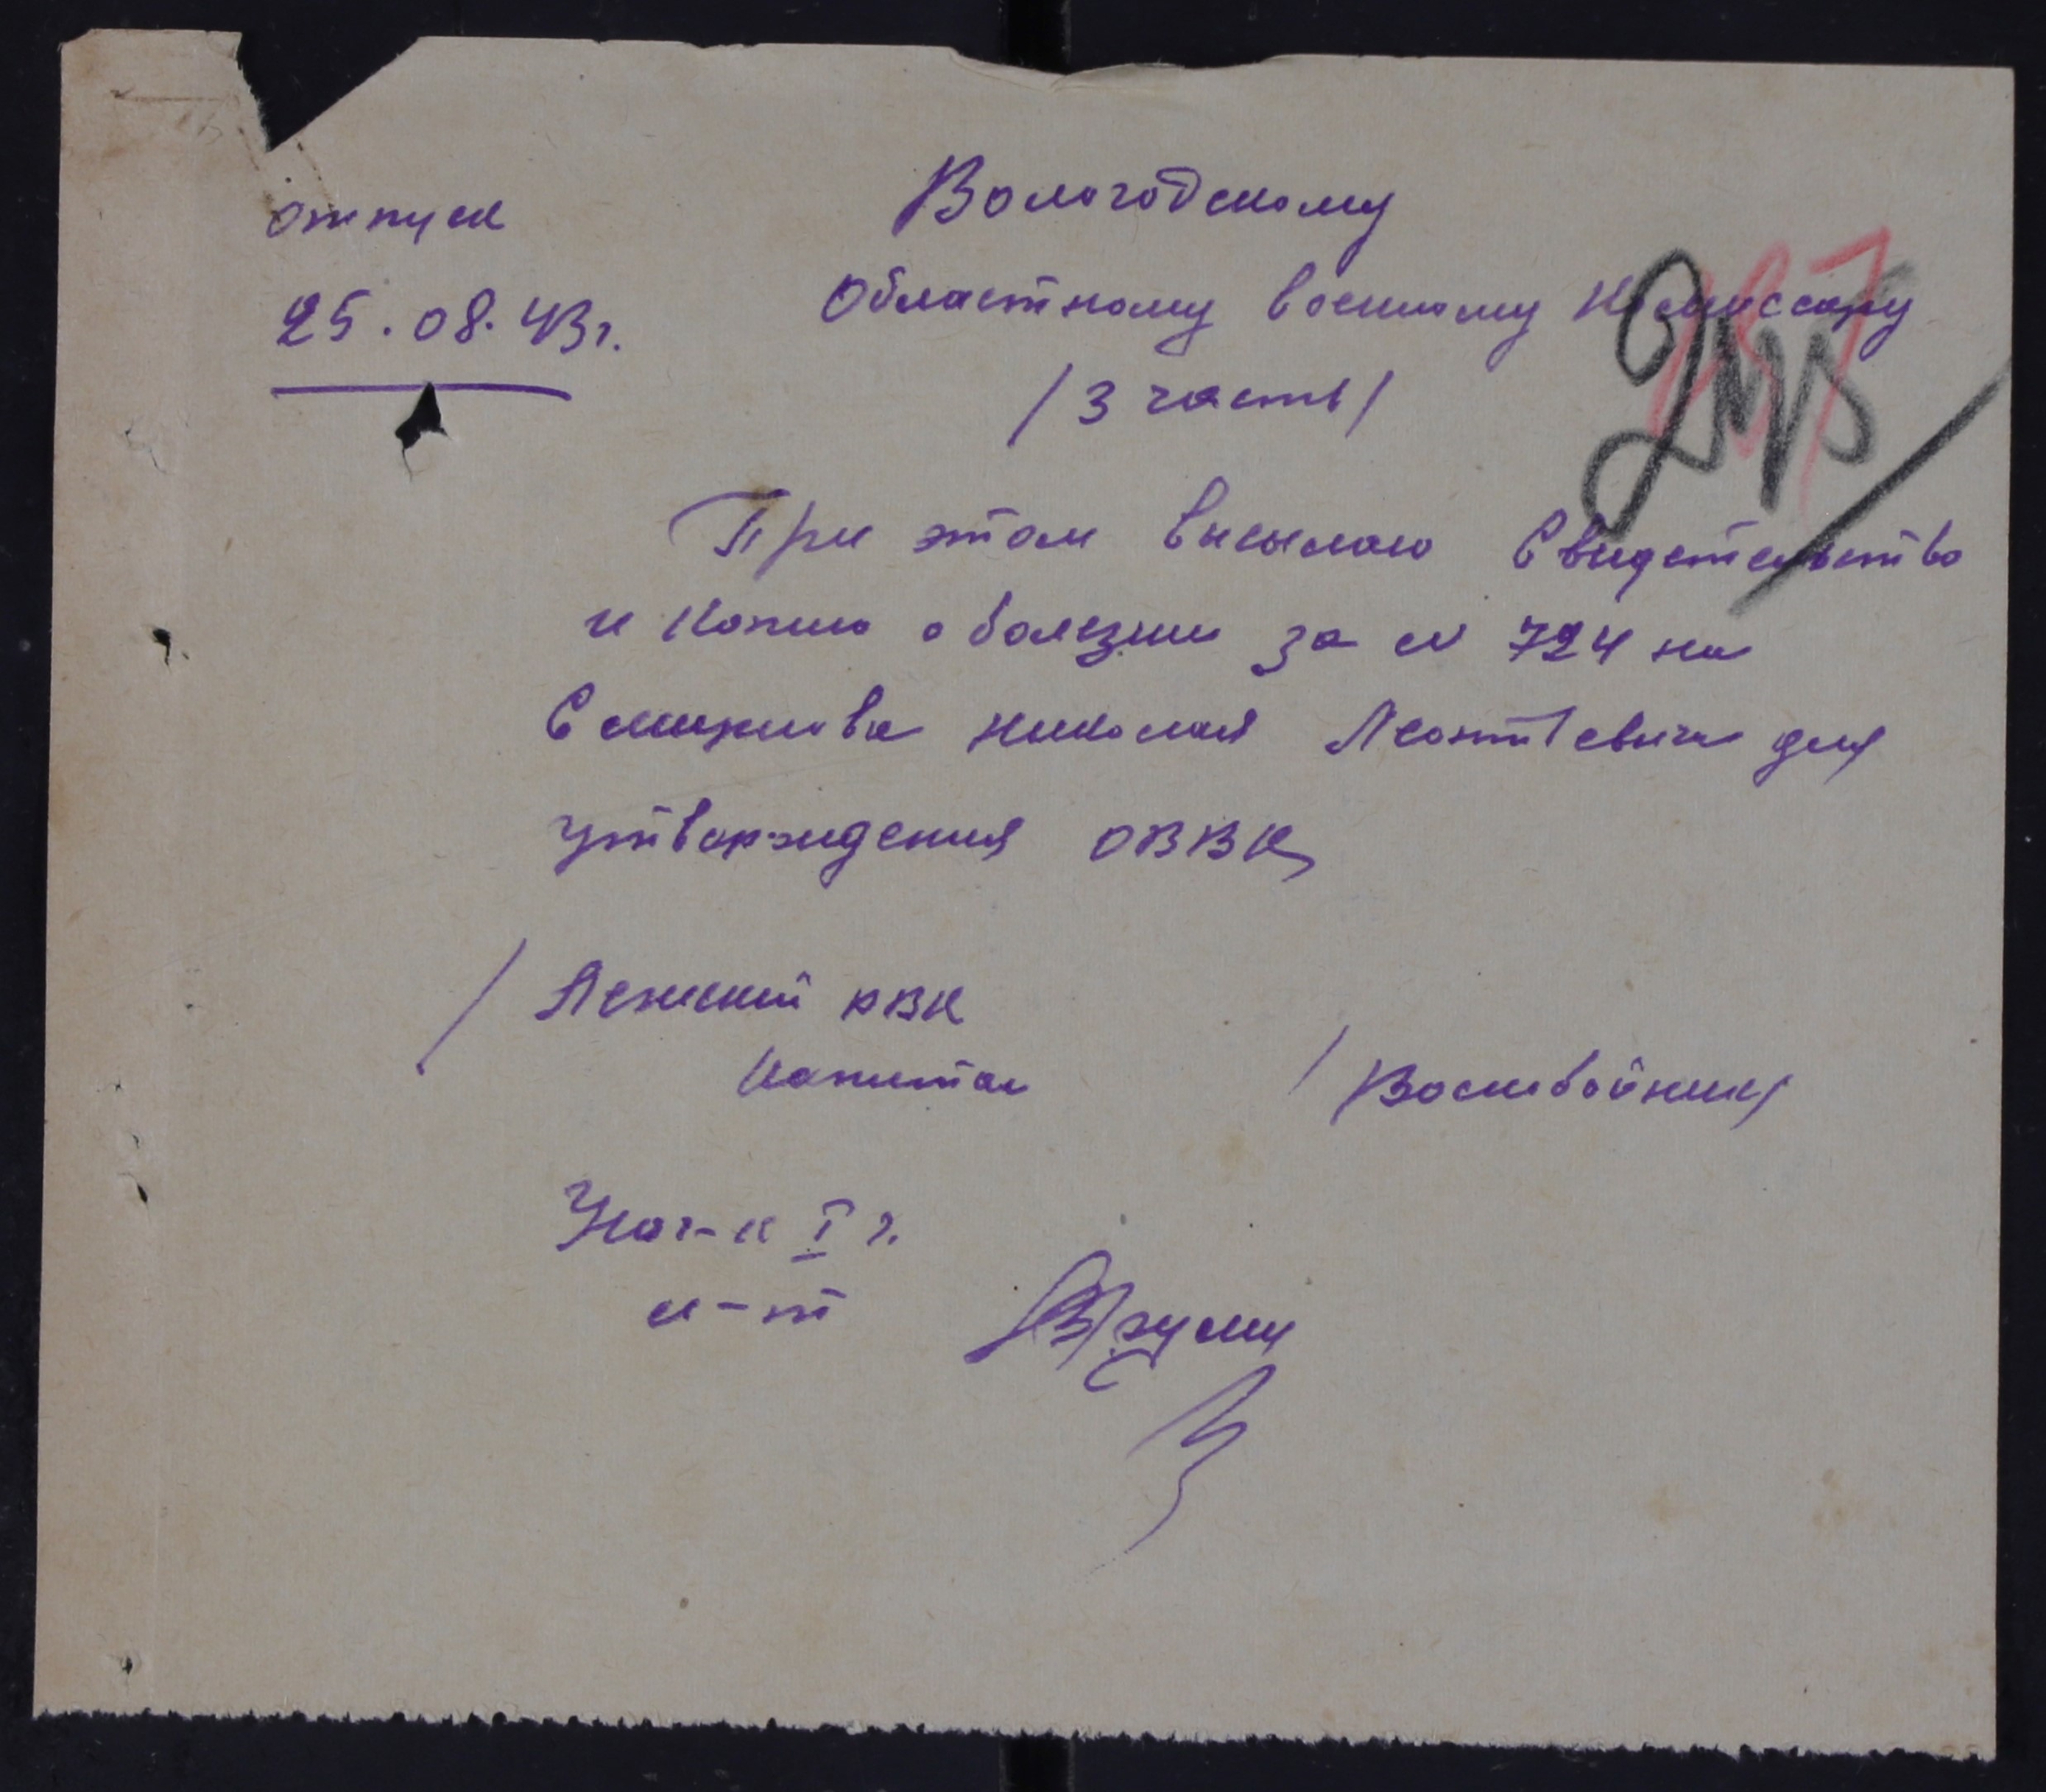 отпуск
25.08.43г.
Вологодскому
Областному военному Комиссару
/3 часть/
При этом высылаю Свидетельство
и Копию о болезни за N 724 на
Смирнова Николая Леонтьевича для
утверждения ОВВК
/Лежский РВК
Капитан /Воскобойник/
Нач-к I ч.
л-т